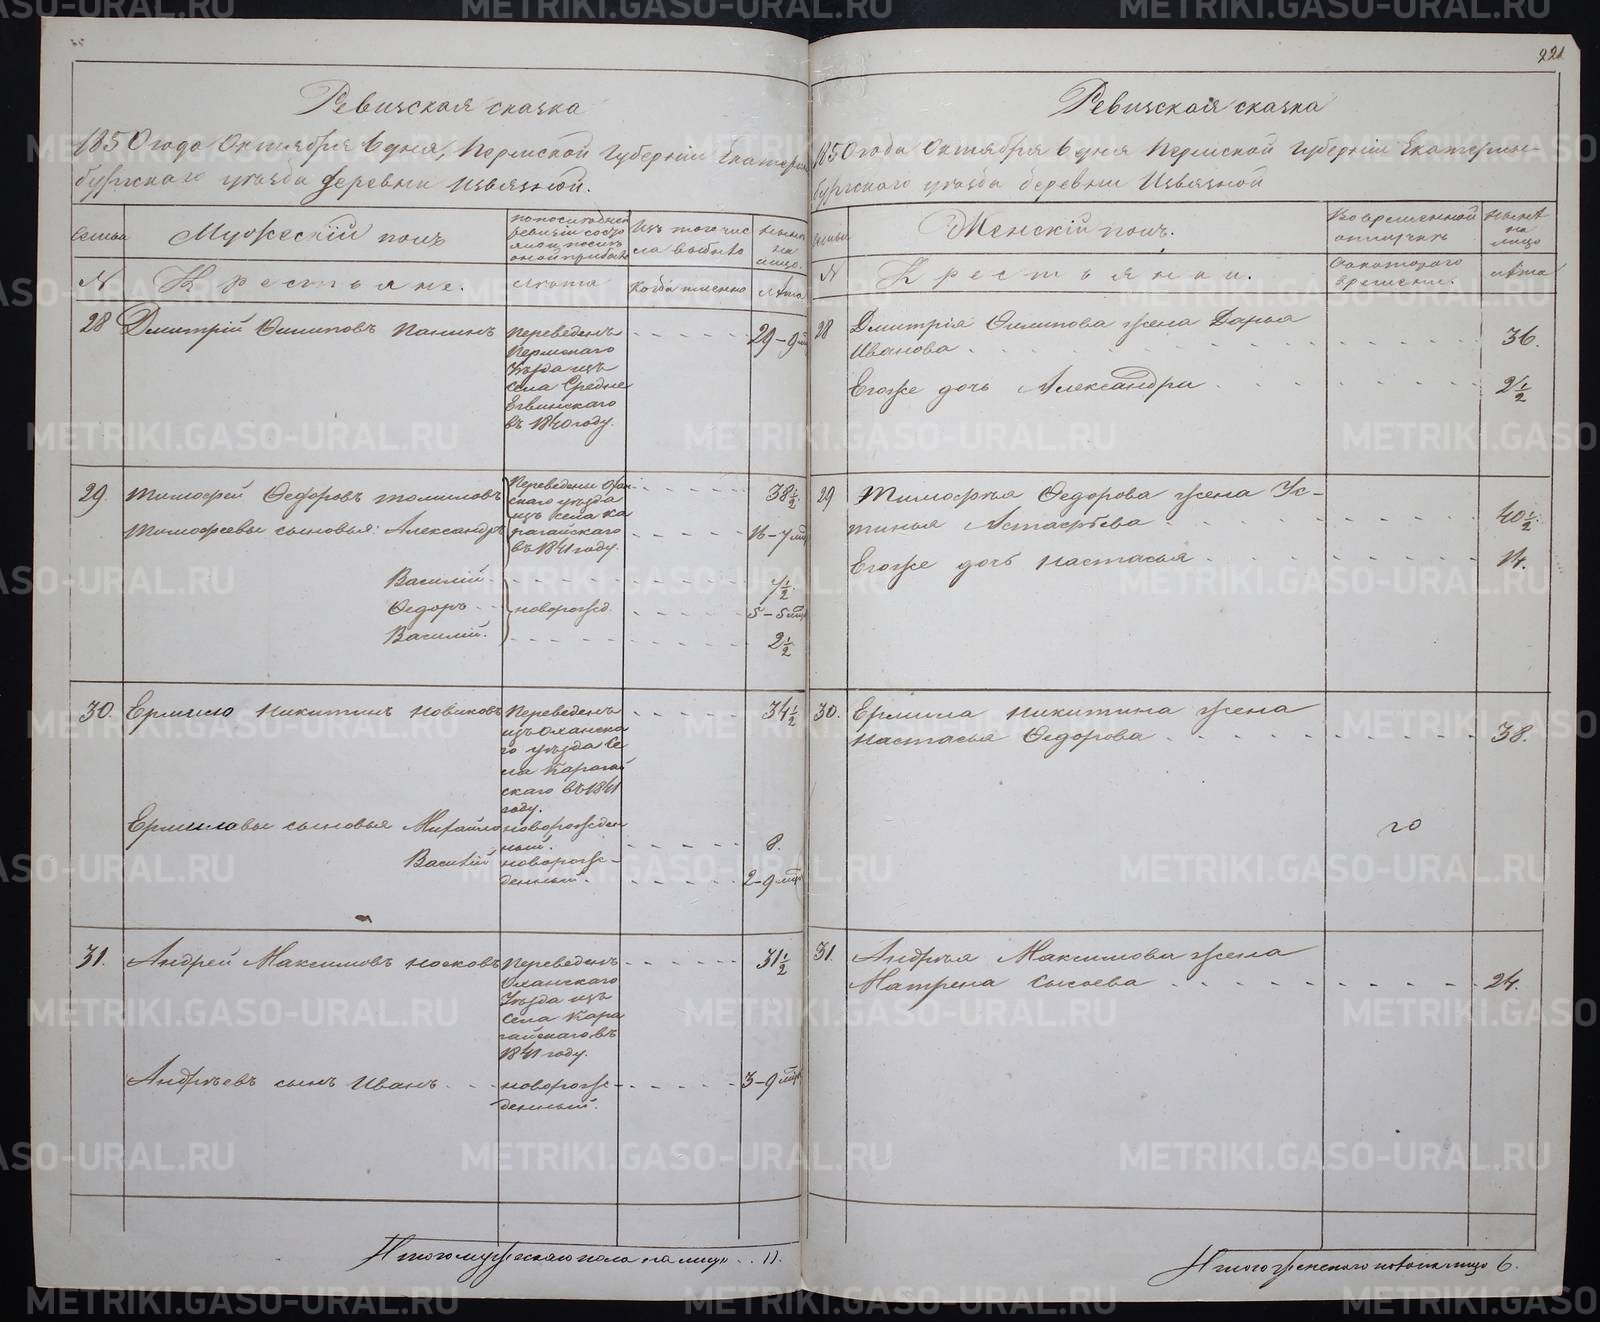 221
Ревизская сказка
1850 года Октября 6 дня, Пермской Губернии Екатерин
бургского уезда деревни Извѣзной.
Семьи
Мужескій полъ
Изъ того чис
ла выбыло
Нынѣ
на
лицо.
N
Крестьяне.
лѣта
когда именно
лѣта
28 Дмитрій Филиповъ Панинъ
Переведенъ
Пермскаго
Уѣзда изъ
села Средне
Егвинскаго
въ 1840 году.
29 - 9 мѣ
29. Тимофей Федоровъ Томиловъ
Переведены Охан
скаго уѣзда
изъ села Ка
рагайскаго
въ 1841 году.
38½.
Тимофеевы сыновья: Александръ
16 - 7 мѣ
Василій
7½
Федоръ
новорожд
5 - 5 мѣц
Василій.
2½
30. Ермило Никитинъ Новиковъ
Переведенъ
изъ Оханска
го уѣзда Се
ла Карагай
скаго въ 1841
году.
34½
Ермиловы сыновья Михайло
новорожден
ный.
8.
Василій
новорож-
денный.
2 - 9 мѣц
31. Андрей Максимовъ Носковъ
Переведенъ
Оханскаго
Уѣзда изъ
села Кара
гайскаго въ
1841 году.
31½
Андрѣевъ сынъ Иванъ
новорож-
денный.
3 - 9 мѣц
Итого мужескаго пола на лицо . . 11.
Ревизская сказка
1850 года Октября 6 дня Пермской Губерніи Екатерин-
бургскаго уѣзда деревни
Семьи
Женскій полъ.
Во временной
отлучкѣ
Нынѣ
на
лицо
N
Крестьянки.
Съ котораго
времени.
лѣта
28 Дмитрія Филипова жена Дарья
Иванова
36.
Его же дочь Александра
2½
29 Тимофѣя Федорова жена Ус-
тинья Астафьева
40½.
Его же дочь Настасья
14.
30. Ермила Никитина жена
Настасья Федорова
38.
31. Андрѣя Максимова жена
Матрена Сысоева
24.
Итого женскаго пола на лицо 6.
METRIKI.GASO-URAL.RU